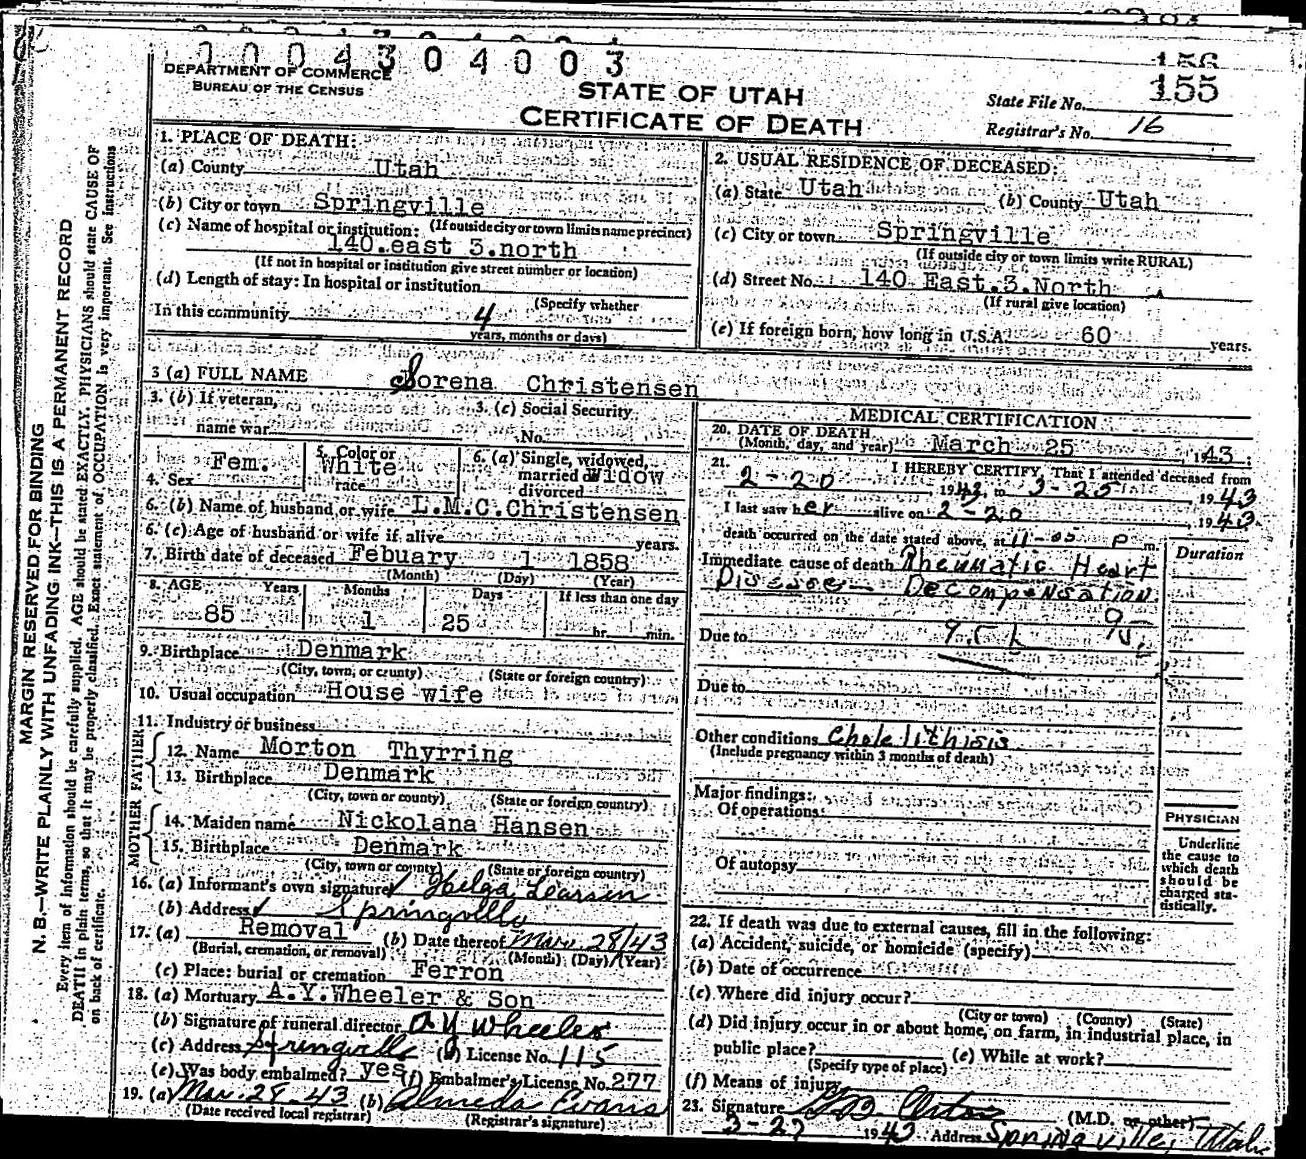 0 0 0 4 3 0 4 0 0 0 3
DEPARTMENT OF COMMERCE
BUREAU OF THE CENSUS
STATE OF UTAH
CERTIFICATE OF DEATH
156
155
State File No.
Registrar's No. 16
MARGIN RESERVED FOR BINDING
N. B.—WRITE PLAINLY WITH UNFADING INK—THIS IS A PERMANENT RECORD
Every item of information should be carefully supplied. AGE should be stated EXACTLY. PHYSICIANS should state CAUSE OF
DEATH in plain terms, so that it may be properly classified. Exact statement of OCCUPATION is very important. See instructions
on back of certificate.
1. PLACE OF DEATH:
(a) County Utah
(b) City or town Springville
(If outside city or town limits name precinct)
(c) Name of hospital or institution:
140.east 3.north
(If not in hospital or institution give street number or location)
(d) Length of stay: In hospital or institution
(Specify whether
In this community 4
years, months or days)
2. USUAL RESIDENCE OF DECEASED:
(a) State Utah (b) County Utah
(c) City or town Springville
(If outside city or town limits write RURAL)
(d) Street No. 140 East.3.North
(If rural give location)
(e) If foreign born, how long in U.S.A. 60 years.
3 (a) FULL NAME Sorena Christensen
3. (b) If veteran,
name war
3. (c) Social Security
No.
4. Sex Fem.
5. Color or
race White
6. (a) Single, widowed,
married or Widow
divorced
6. (b) Name of husband or wife L.M.C.Christensen
6. (c) Age of husband or wife if alive years.
7. Birth date of deceased Febuary 1 1858
(Month) (Day) (Year)
8. AGE Years Months Days If less than one day
85 1 25 hr. min.
9. Birthplace Denmark
(City, town, or county) (State or foreign country)
10. Usual occupation House wife
11. Industry or business
FATHER
12. Name Morton Thyrring
13. Birthplace Denmark
(City, town or county) (State or foreign country)
MOTHER
14. Maiden name Nickolana Hansen
15. Birthplace Denmark
(City, town or county) (State or foreign country)
16. (a) Informant's own signature Helga Learsen
(b) Address Springville
17. (a) Removal (b) Date thereof Mar. 28/43
(Burial, cremation, or removal) (Month) (Day) (Year)
(c) Place: burial or cremation Ferron
18. (a) Mortuary A.Y.Wheeler & Son
(b) Signature of funeral director A Y Wheeler
(c) Address Springville License No. 115
(e) Was body embalmed? yes (f) Embalmer's License No. 277
19. (a) Mar. 28-43 (b) Almeda Evans
(Date received local registrar) (Registrar's signature)
MEDICAL CERTIFICATION
20. DATE OF DEATH
(Month, day, and year) March 25, 1943;
21. I HEREBY CERTIFY, That I attended deceased from
2-20, 1943, to 3-25, 1943
I last saw her alive on 2-20, 1943
death occurred on the date stated above, at 11-05 P m.
Duration
Immediate cause of death Rheumatic Heart
Disease - Decompensation
Due to
Due to
Other conditions Cholelithisis
(Include pregnancy within 3 months of death)
Major findings:
Of operations
Of autopsy
PHYSICIAN
Underline
the cause to
which death
should be
charged sta-
tistically.
22. If death was due to external causes, fill in the following:
(a) Accident, suicide, or homicide (specify)
(b) Date of occurrence
(c) Where did injury occur?
(City or town) (County) (State)
(d) Did injury occur in or about home, on farm, in industrial place, in
public place? (e) While at work?
(Specify type of place)
(f) Means of injury
23. Signature (M.D. or other)
3-27 1943 Address Springville, Utah